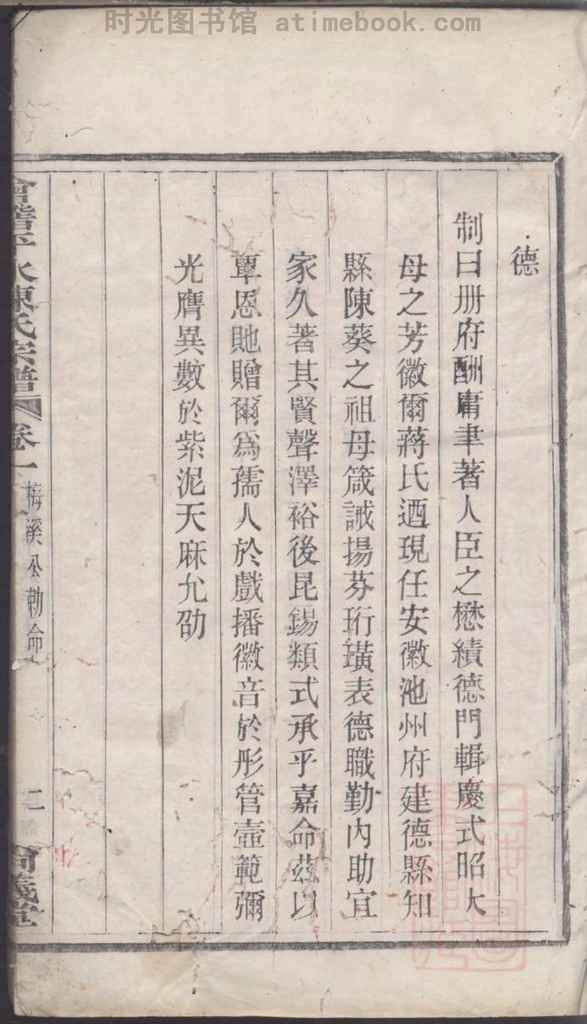 时光图书馆 atimebook.com
德
制曰冊府酬庸聿著人臣之懋績德門輯慶式昭大
母之芳徽爾蔣氏迺現任安徽池州府建德縣知
縣陳葵之祖母箴誡揚芬珩璜表德職勤內助宜
家久著其賢聲澤裕後昆錫類式承乎嘉命茲以
覃恩貤贈爾爲孺人於戲播徽音於彤管壼範彌
光膺異數於紫泥天庥允劭
會稽平水陳氏宗譜 卷一 梅溪公勅命 二